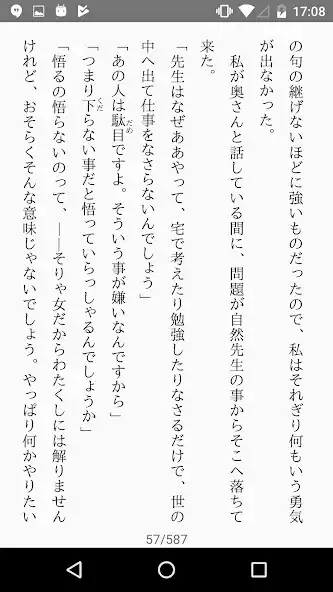 17:08
の句の継げないほどに強いものだったので、私はそれぎり何もいう勇気
が出なかった。
私が奥さんと話している間に、問題が自然先生の事からそこへ落ちて
来た。
「先生はなぜああやって、宅で考えたり勉強したりなさるだけで、世の
中へ出て仕事をなさらないんでしょう」
「あの人は駄目ですよ。そういう事が嫌いなんですから」
だめ
「つまり下らない事だと悟っていらっしゃるんでしょうか」
くだ
「悟るの悟らないのって、――そりゃ女だからわたくしには解りません
けれど、おそらくそんな意味じゃないでしょう。やっぱり何かやりたい
57/587